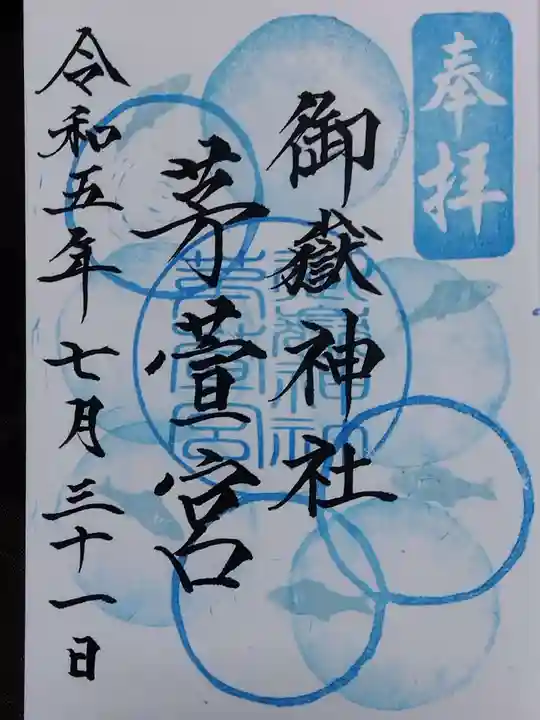 奉拝
御嶽神社
茅萱宮
令和五年七月三十一日